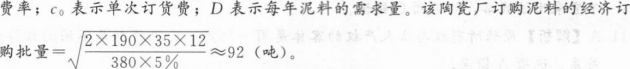 费率；c₀表示单次订货费；D表示每年泥料的需求量。该陶瓷厂订购泥料的经济订
购批量=√(2×190×35×12/380×5%)≈92（吨）。